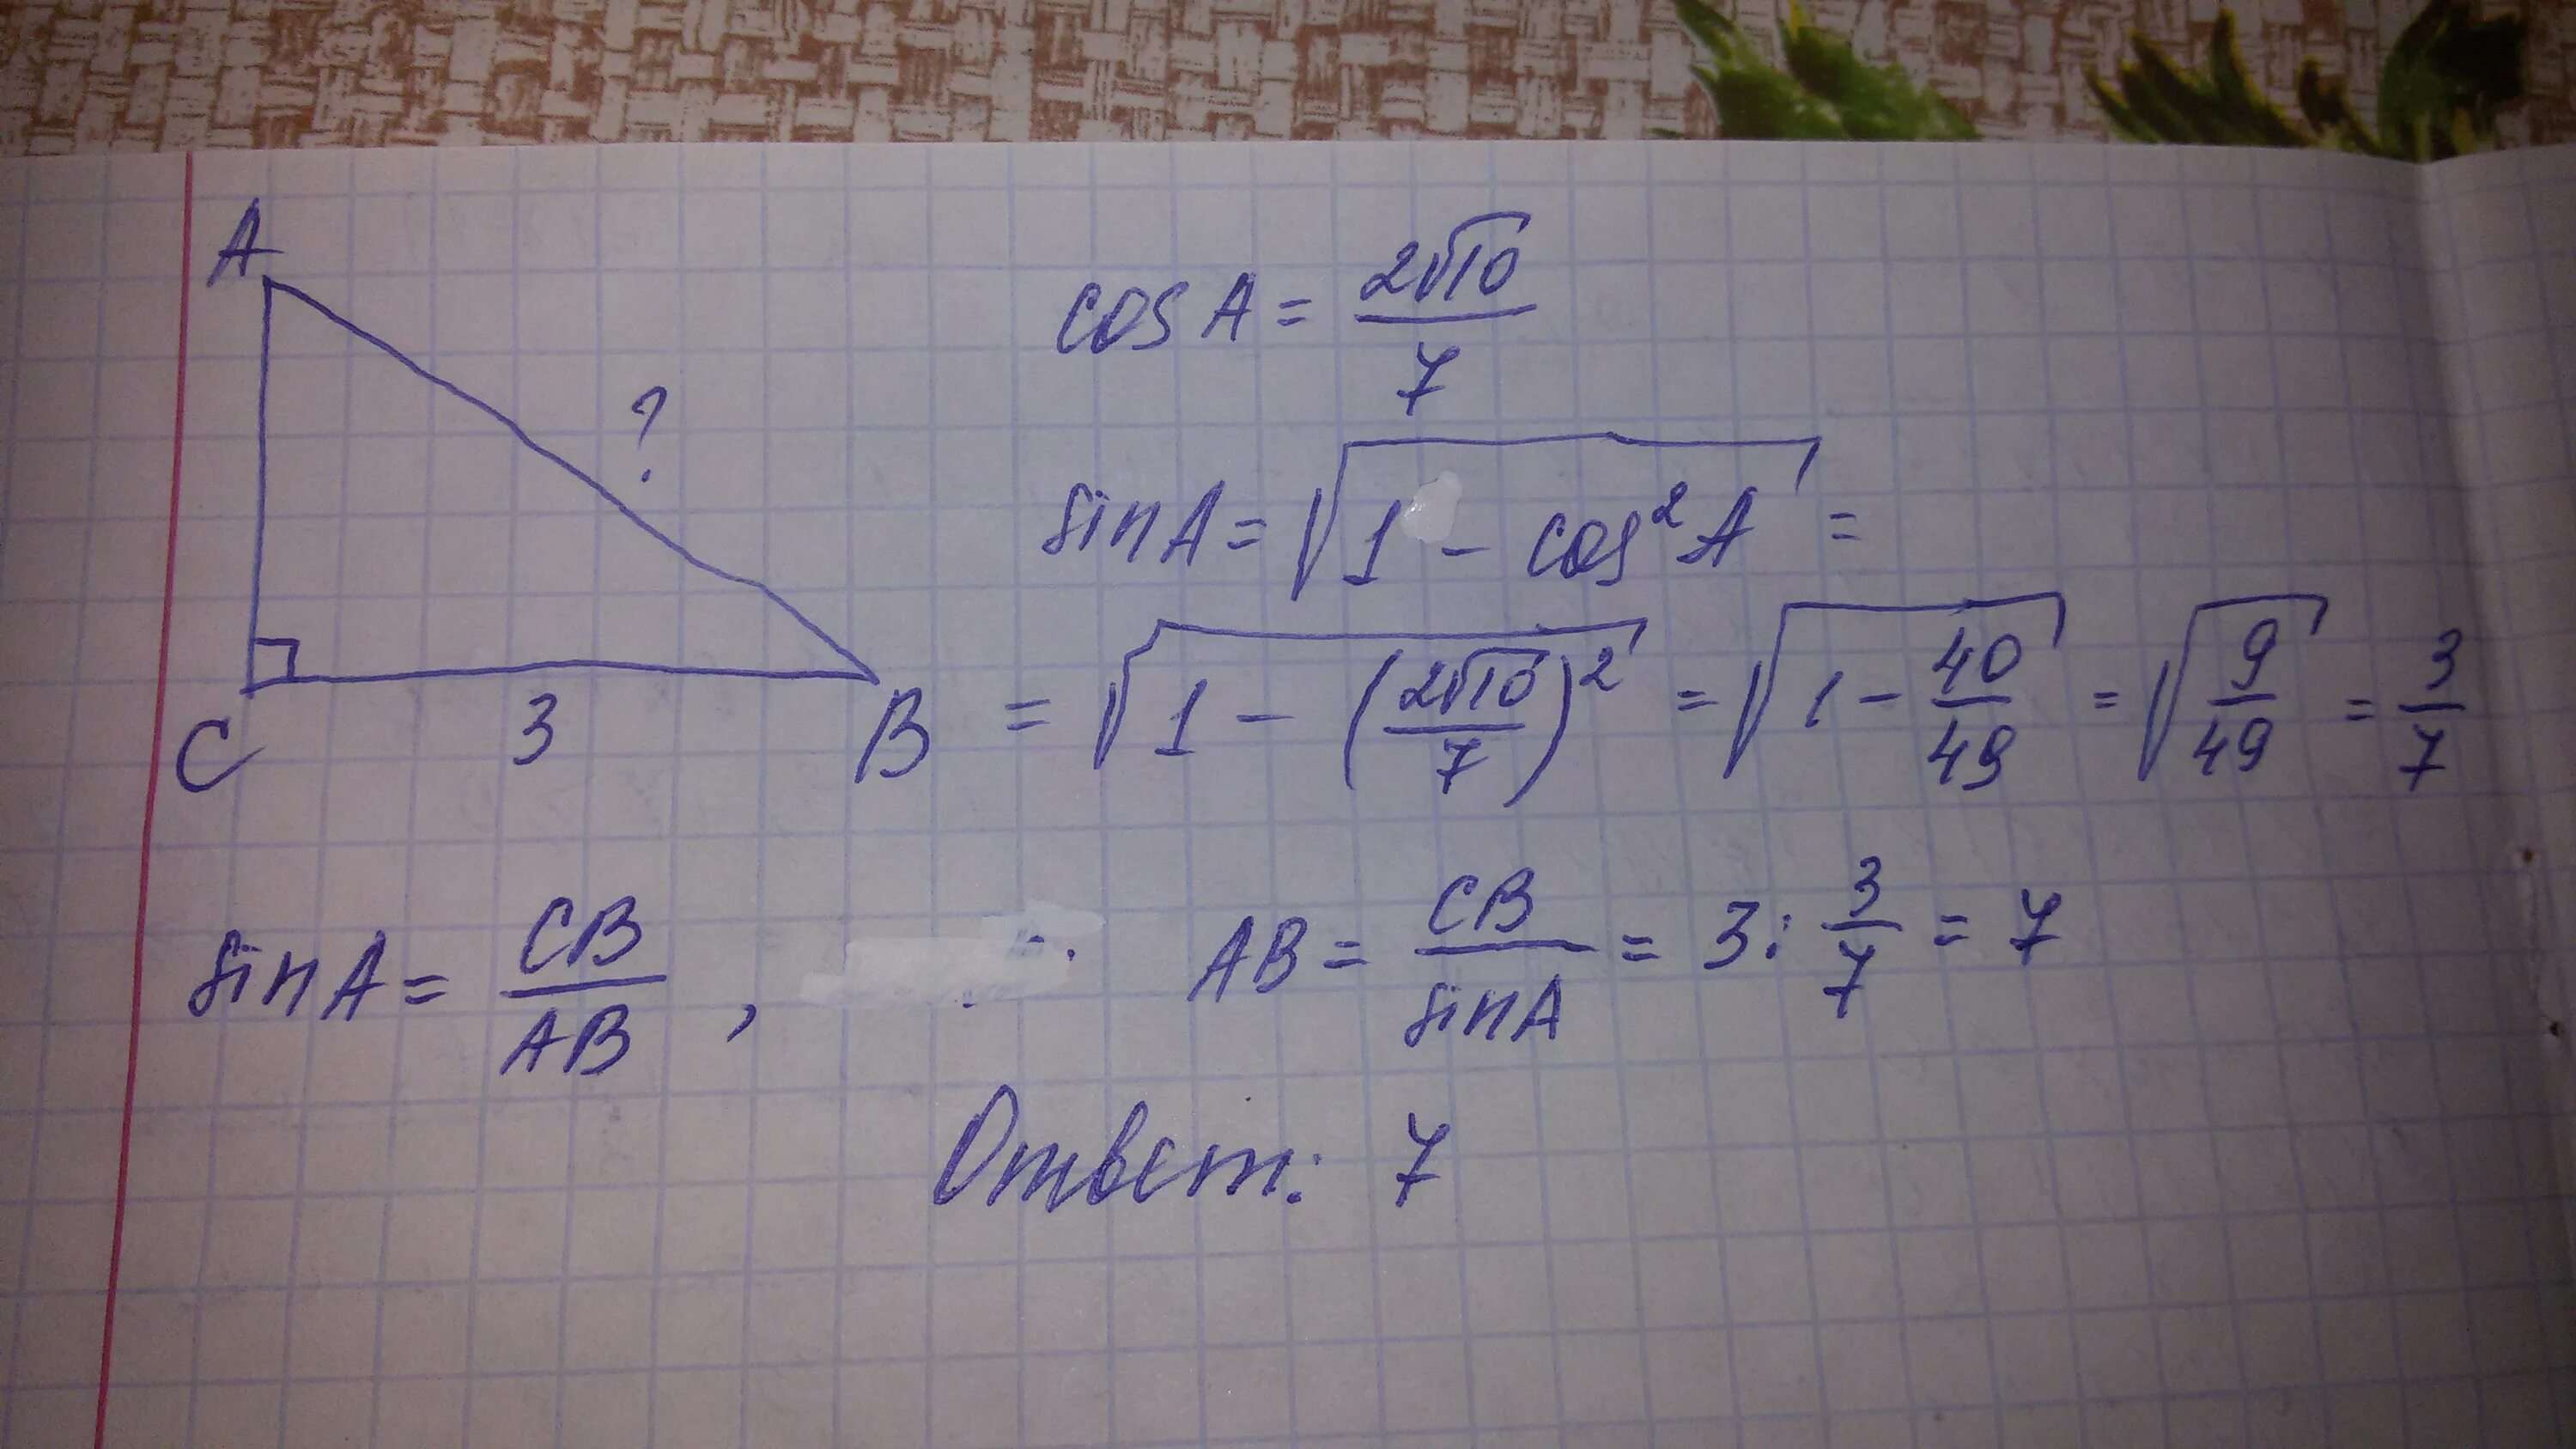 A
?
C 3 B
cos A = 2√10/7
sin A = √(1 - cos²A) =
= √(1 - (2√10/7)²) = √(1 - 40/49) = √(9/49) = 3/7
sin A = CB/AB , AB = CB/sin A = 3 : 3/7 = 7
Ответ: 7